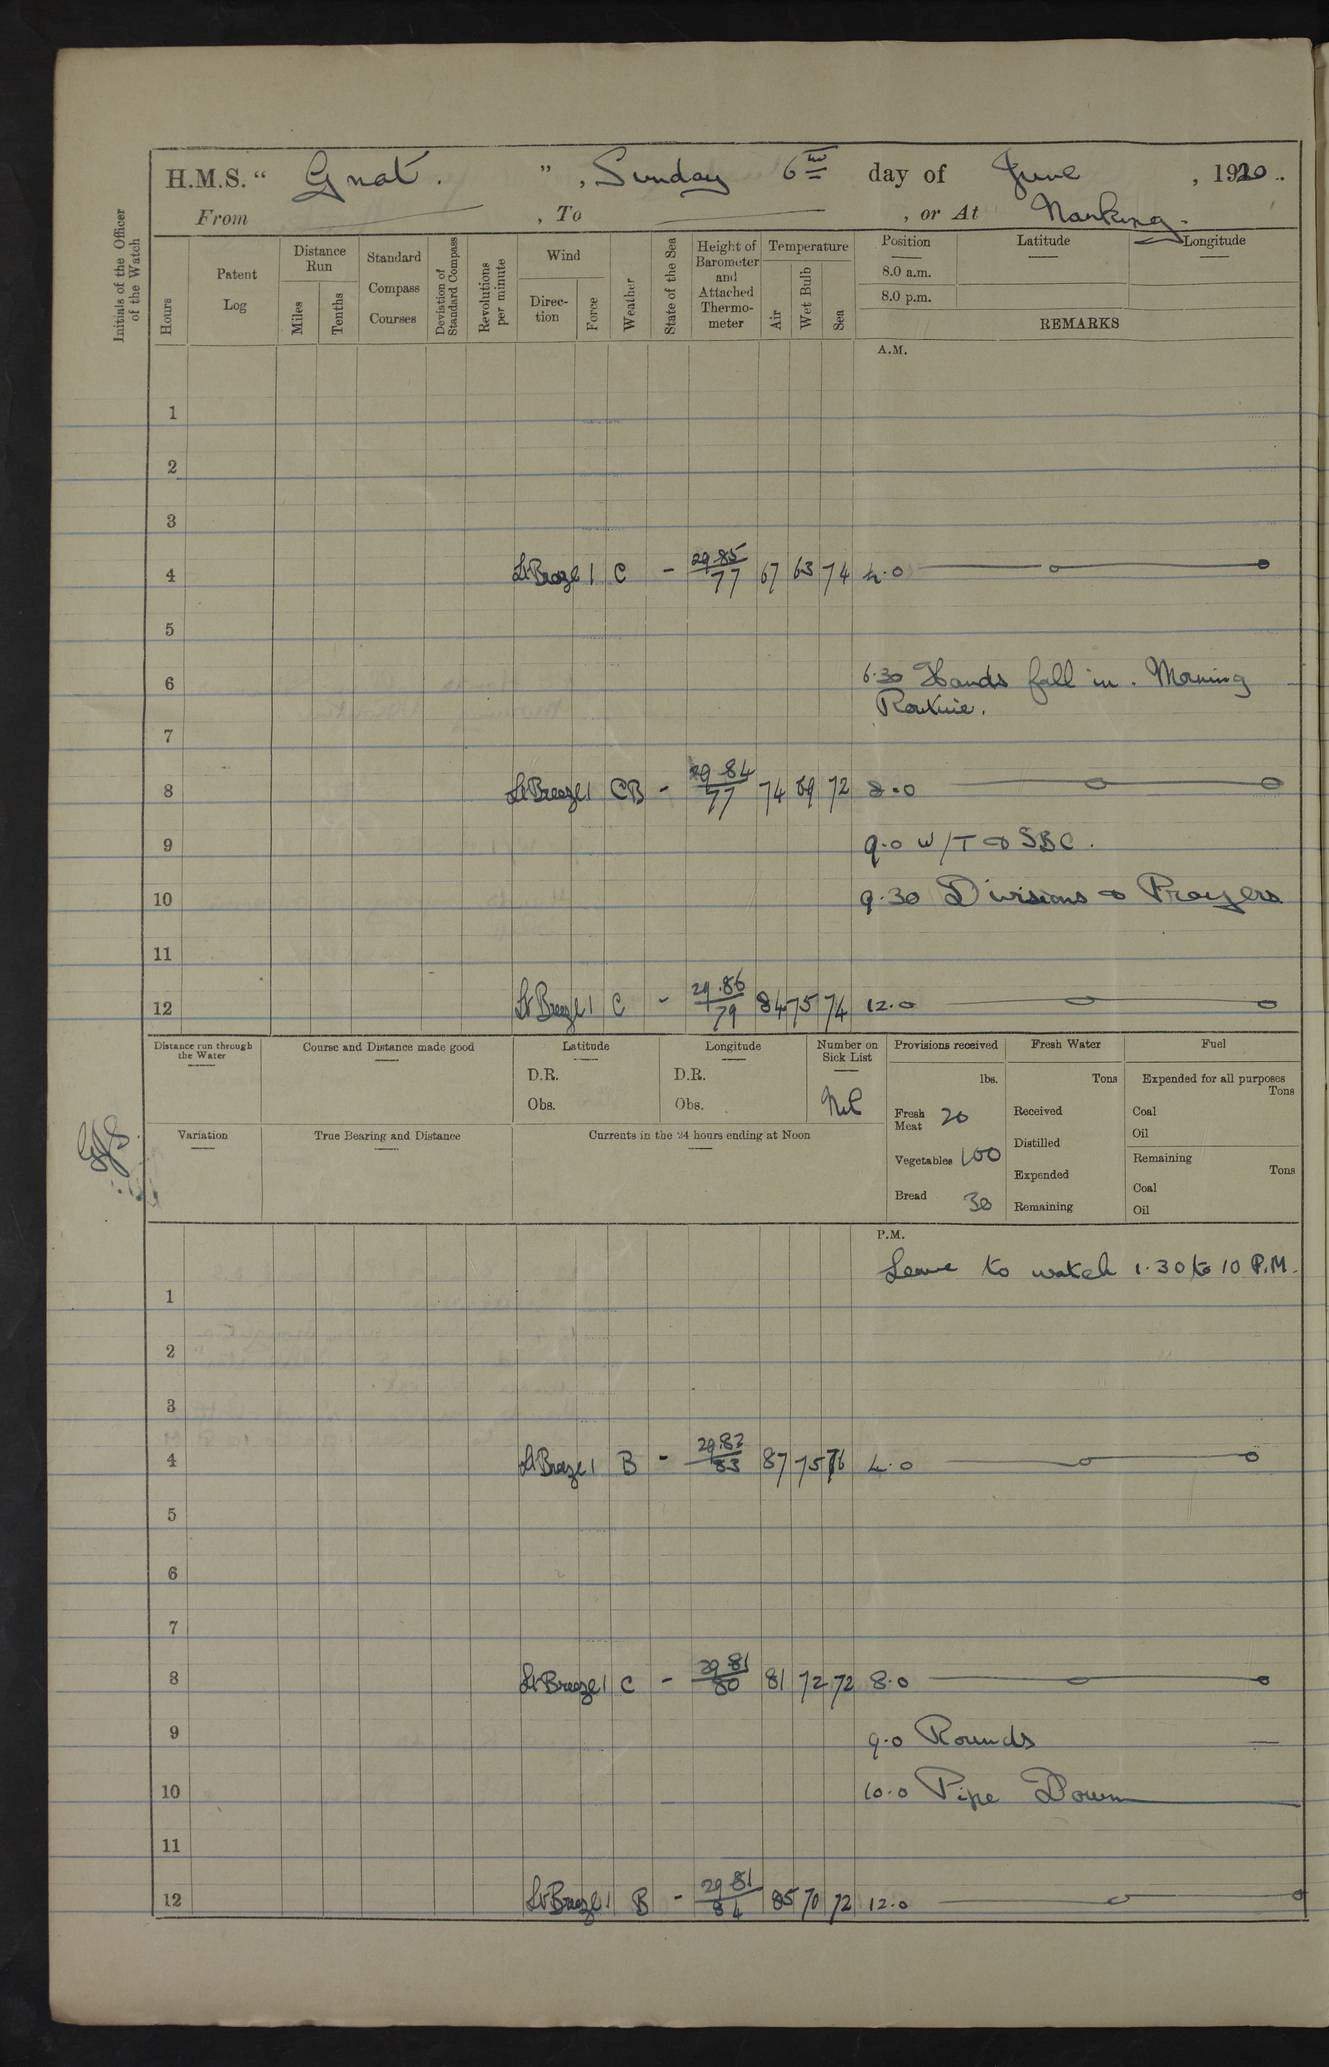 H.M.S. " Gnat. ", Sunday 6th day of June, 1920.
From , To , or At Nanking.
Initials of the Officer of the Watch
Hours
Patent Log
Distance Run
Miles
Tenths
Standard Compass Courses
Deviation of Standard Compass
Revolutions per minute
Wind
Direction
Force
Weather
State of the Sea
Height of Barometer and Attached Thermometer
Temperature
Air
Wet Bulb
Sea
Position Latitude Longitude
8.0 a.m.
8.0 p.m.
REMARKS
A.M.
1
2
3
4 Lt Breeze 1 C - 29.85/77 67 63 74 4.0
5
6 6.30 Hands fall in. Morning
Routine.
7
8 Lt Breeze 1 CB - 29.84/77 74 69 72 8.0
9 9.0 W/T & SBC.
10 9.30 Divisions & Prayers
11
12 Lt Breeze 1 C - 29.86/79 84 75 74 12.0
Distance run through the Water
Course and Distance made good
Latitude
D.R.
Obs.
Longitude
D.R.
Obs.
Number on Sick List
Nil
Provisions received
lbs.
Fresh Meat 20
Vegetables 100
Bread 30
Fresh Water
Tons
Received
Distilled
Expended
Remaining
Fuel
Expended for all purposes
Tons
Coal
Oil
Remaining
Tons
Coal
Oil
Variation
True Bearing and Distance
Currents in the 24 hours ending at Noon
P.M.
Leave to watch 1.30 to 10 P.M.
1
2
3
4 Lt Breeze 1 B - 29.82/83 87 75 76 4.0
5
6
7
8 Lt Breeze 1 C - 29.81/80 81 72 72 8.0
9 9.0 Rounds
10 10.0 Pipe Down
11
12 Lt Breeze 1 B - 29.81/84 85 70 72 12.0